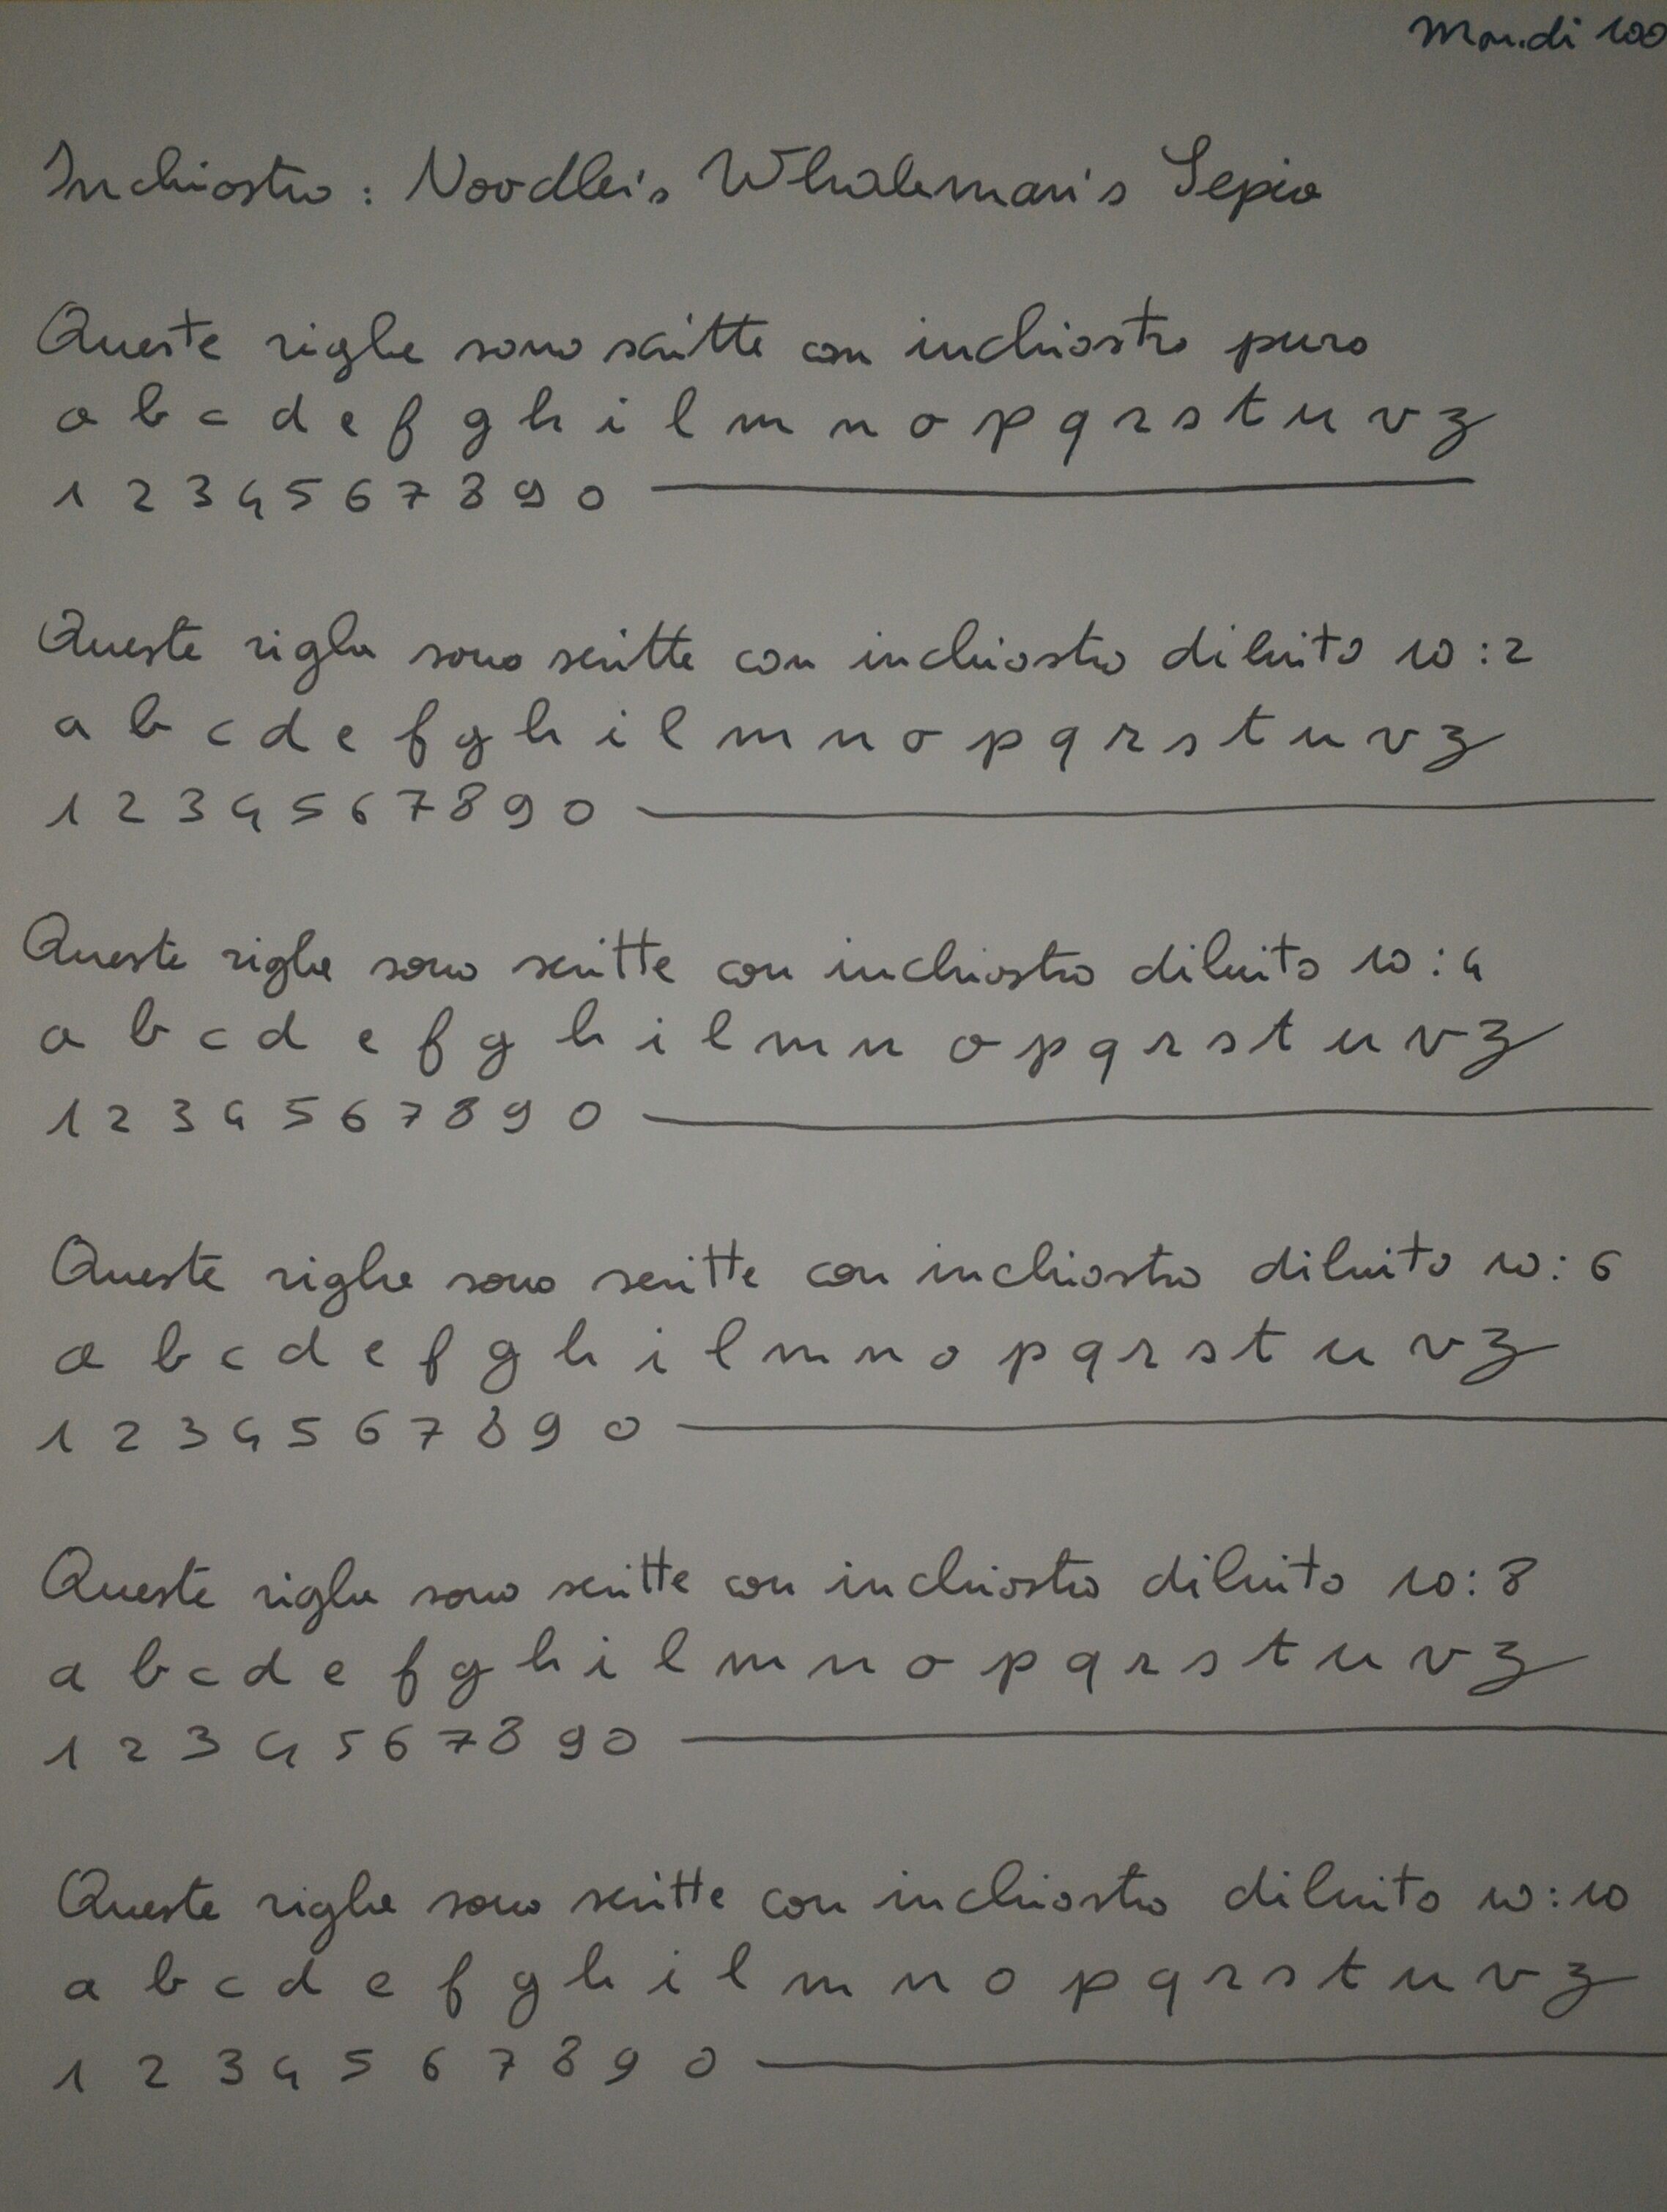 Mondi 100
Inchiostro: Noodler's Whaleman's Sepia
Queste righe sono scritte con inchiostro puro
a b c d e f g h i l m n o p q r s t u v z
1 2 3 4 5 6 7 8 9 0
Queste righe sono scritte con inchiostro diluito 10:2
a b c d e f g h i l m n o p q r s t u v z
1 2 3 4 5 6 7 8 9 0
Queste righe sono scritte con inchiostro diluito 10:4
a b c d e f g h i l m n o p q r s t u v z
1 2 3 4 5 6 7 8 9 0
Queste righe sono scritte con inchiostro diluito 10:6
a b c d e f g h i l m n o p q r s t u v z
1 2 3 4 5 6 7 8 9 0
Queste righe sono scritte con inchiostro diluito 10:8
a b c d e f g h i l m n o p q r s t u v z
1 2 3 4 5 6 7 8 9 0
Queste righe sono scritte con inchiostro diluito 10:10
a b c d e f g h i l m n o p q r s t u v z
1 2 3 4 5 6 7 8 9 0